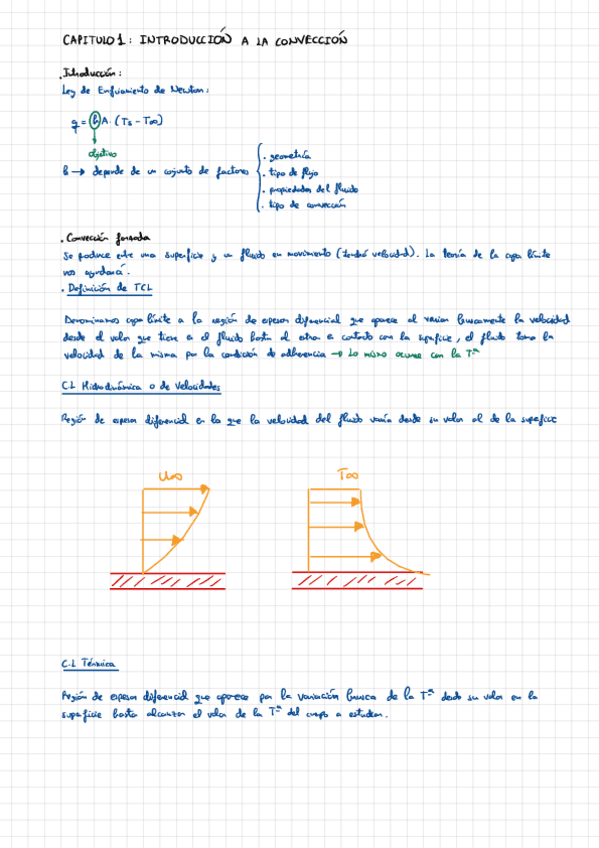 CAPITULO 1: INTRODUCCIÓN A LA CONVECCIÓN
. Introducción:
Ley de Enfriamiento de Newton:
q = h A · (Ts - T∞)
objetivo
h → depende de un conjunto de factores
. geometría
. tipo de flujo
. propiedades del fluido
. tipo de convección
. Convección forzada
Se produce entre una superficie y un fluido en movimiento (tendrá velocidad). La teoría de la capa límite
nos ayudará.
. Definición de TCL
Denominamos capa límite a la región de espesor diferencial que aparece al variar bruscamente la velocidad
desde el valor que tiene en el fluido hasta al entrar en contacto con la superficie, el fluido toma la
velocidad de la misma por la condición de adherencia → Lo mismo ocurre con la Tª
C.L Hidrodinámica o de Velocidades
Región de espesor diferencial en la que la velocidad del fluido varía desde su valor al de la superficie
U∞ T∞
C.L Térmica
Región de espesor diferencial que aparece por la variación brusca de la Tª desde su valor en la
superficie hasta alcanzar el valor de la Tª del cuerpo a estudiar.